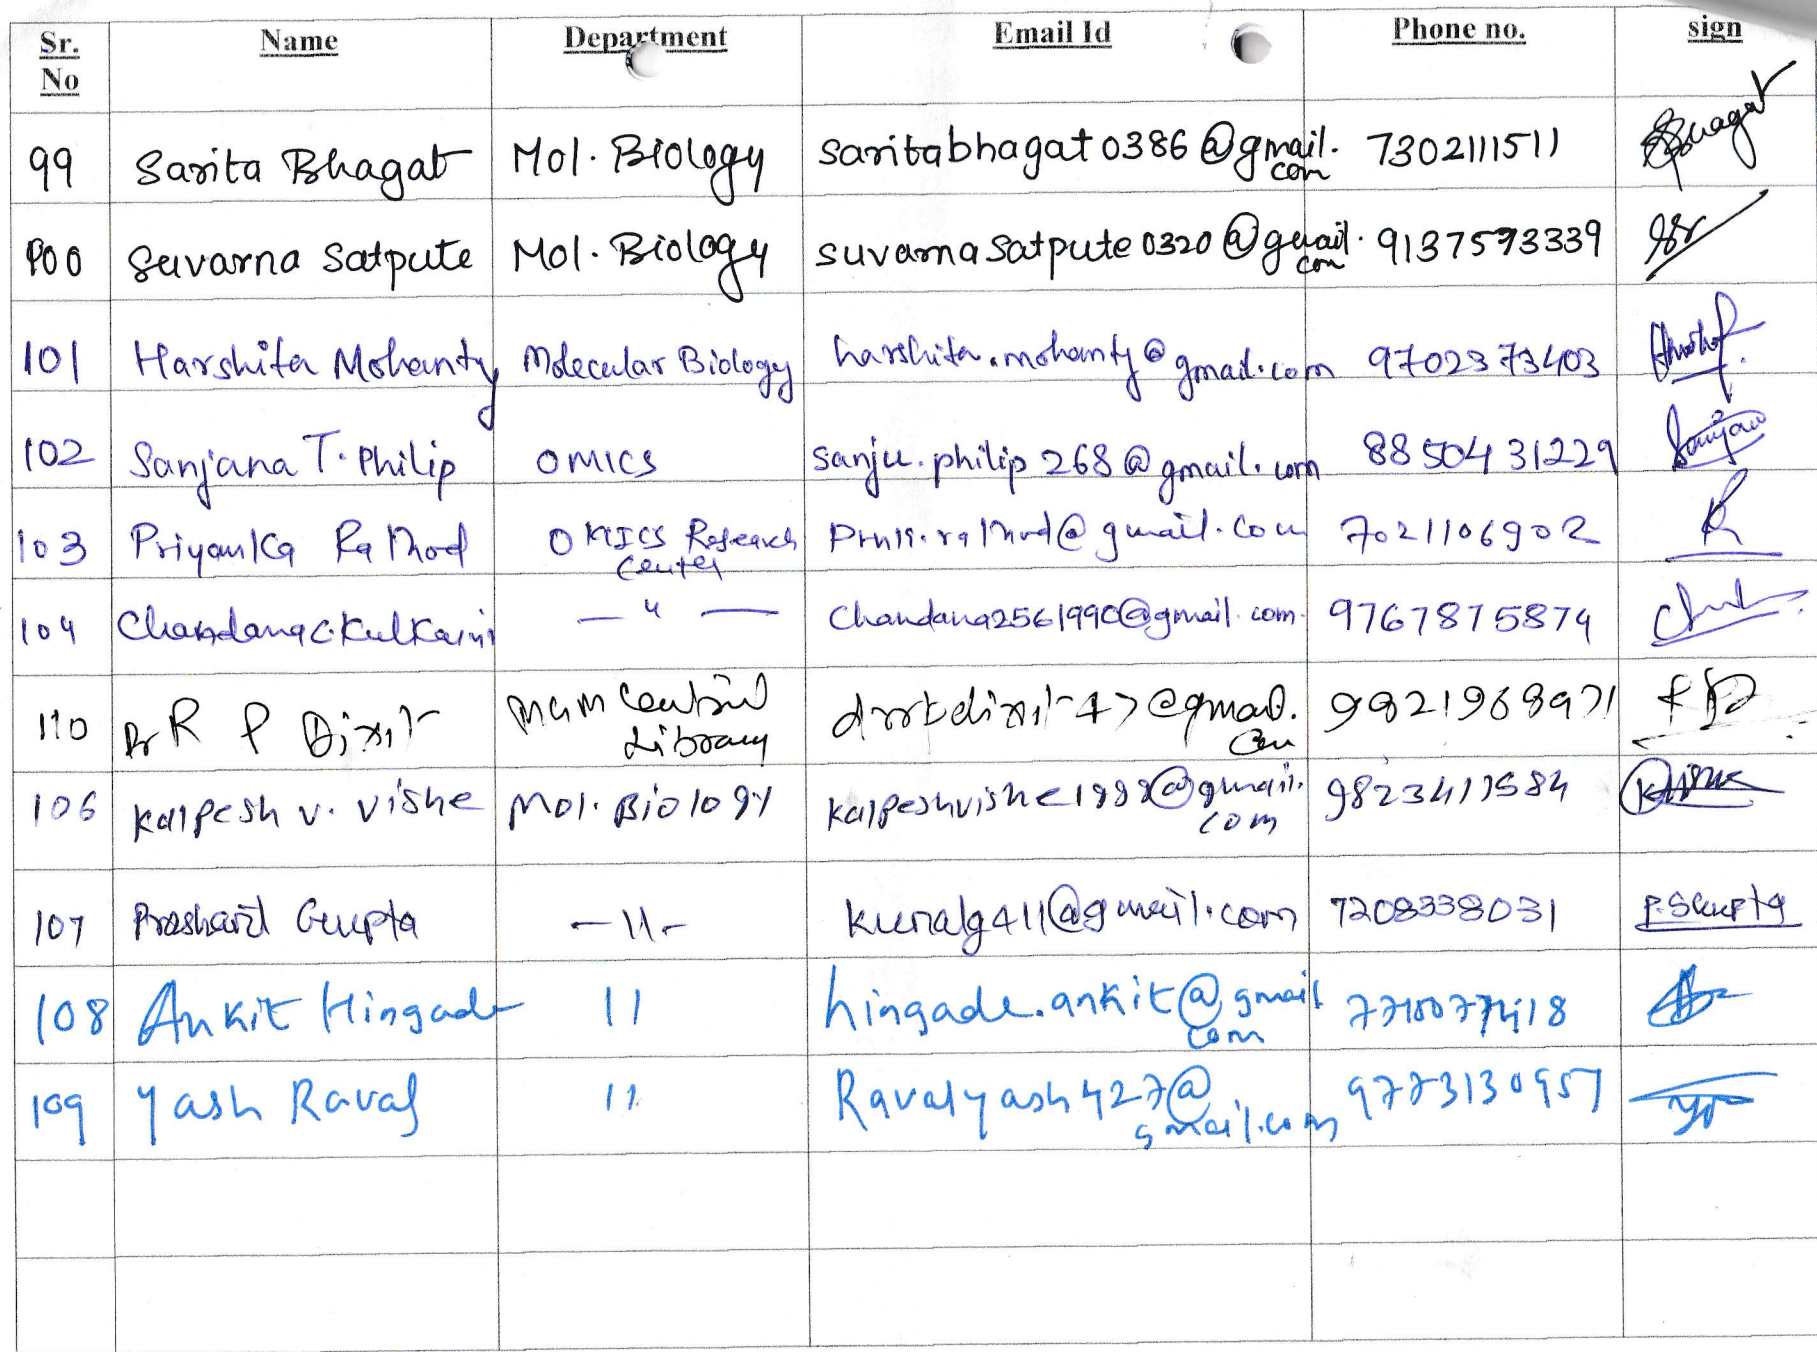 Sr. No Name Department Email Id Phone no. sign
99 Sarita Bhagat Mol. Biology saritabhagat0386@gmail.com 7302111511 Bhagat
100 Suvarna Satpute Mol. Biology suvarnasatpute0320@gmail.com 9137593339
101 Harshita Mohanty Molecular Biology harshita.mohanty@gmail.com 9702373403
102 Sanjana T. Philip OMICS sanju.philip268@gmail.com 8850431229 Sanjana
103 Priyanka Rathod OMICS Research Center 7021106902 R
104 Chandana C. Kulkarni — " — Chandana2561990@gmail.com. 9767875874
110 Dr R P Dixit MGM Central Library drrpdixit47@gmail.com 9821968971
106 Kalpesh v. vishe Mol. Biology kalpeshvishe1998@gmail.com
107 Prashant Gupta -11- kunalg411@gmail.com 7208338031 P.SGupta
108 Ankit Hingade 11 hingade.ankit@gmail com
109 Yash Raval 11 Ravalyash427@gmail.com 9773130957